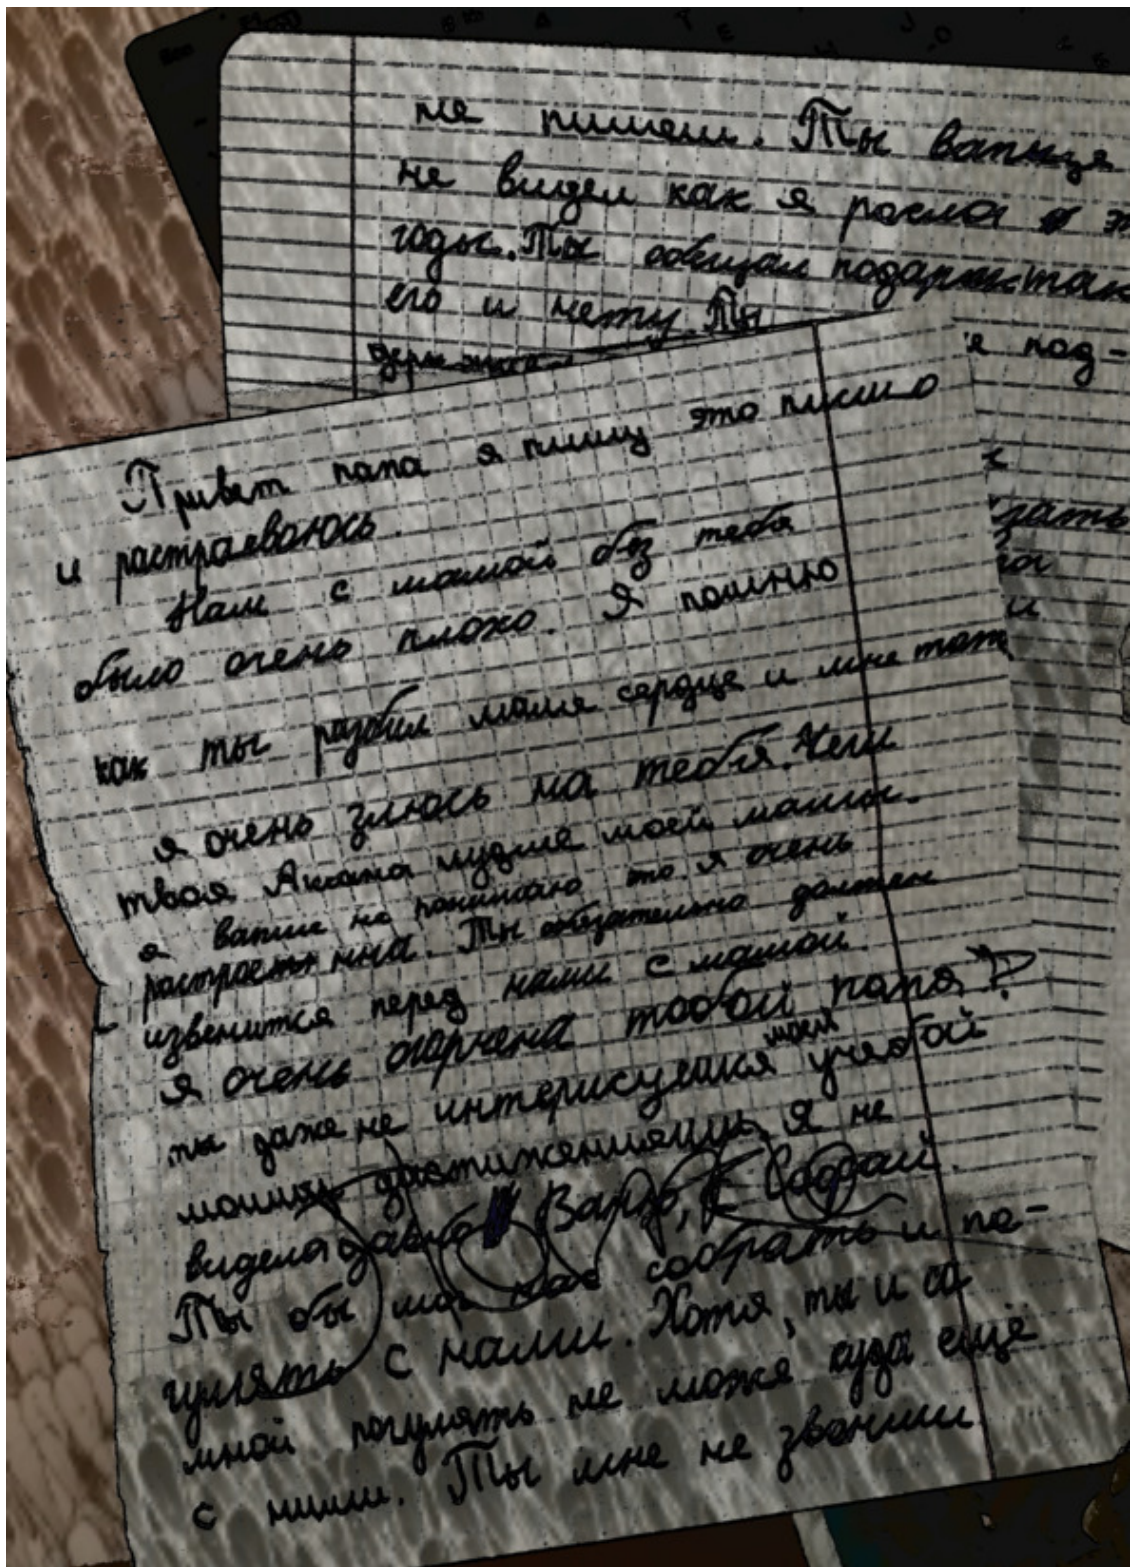 не пишеш. Ты вапще
не видел как я росла в э
годы. Ты обещал подарки так
его и нету. Ты
держ
я под-
Привет папа я пишу это писмо
и растраеваюсь.
Нам с мамой без тебя
было очень плохо. Я помню
как ты разбил маме сердце и мне тоже
я очень злюсь на тебя. Чем
твоя Анана лудше моей мамы.
я вапше не понимаю это я очень
растроенна. Ты обязательно должен
извенится перед нами с мамой
я очень огорчена тобой папа
ты даже не интерисуешся моей учебой
моими достижениями. Я не
видела давно Варю, с Софой.
Ты бы мог нас собрать и по-
гулять с нами. Хотя, ты и со
мной погулять не може куда ещё
с ними. Ты мне не звониш